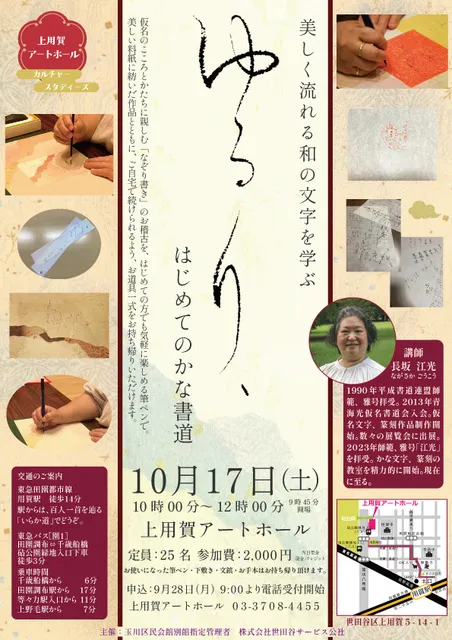 上用賀
アートホール
カルチャー
スタディーズ
美しく流れる和の文字を学ぶ
ゆるり、
はじめてのかな書道
仮名のこころとかたちに親しむ「なぞり書き」のお稽古を、はじめての方でも気軽に楽しめる筆ペンで。
美しい料紙に紡いだ作品とともに、ご自宅で続けられるよう、お道具一式をお持ち帰りいただけます。
講師
長坂 江光
ながうか ごうこう
1990年平成書道連盟師
範、雅号拝受。2013年青
海光仮名書道会入会。仮
名文字、篆刻作品制作開
始。数々の展覧会に出展。
2023年師範、雅号「江光」
を拝受。かな文字、篆刻の
教室を精力的に開始。現在
に至る。
10月17日(土)
10時00分〜12時00分
9時45分
開場
上用賀アートホール
定員:25名 参加費:2,000円
お使いになった筆ペン・下敷き・文鎮・お手本はお持ち帰り頂けます。
申込:9月28日(月) 9:00より電話受付開始
上用賀アートホール 03-3708-4455
交通のご案内
東急田園都市線
用賀駅 徒歩14分
駅からは、百人一首を辿る
「いらか道」でどうぞ。
東急バス[園1]
田園調布⇔千歳船橋
砧公園緑地入口下車
徒歩3分
乗車時間
千歳船橋から 6分
田園調布駅から 17分
等々力駅入口から 11分
上野毛駅から 7分
上用賀アートホール
用賀駅
世田谷区上用賀5-14-1
主催:玉川区民会館別館指定管理者 株式会社世田谷サービス公社